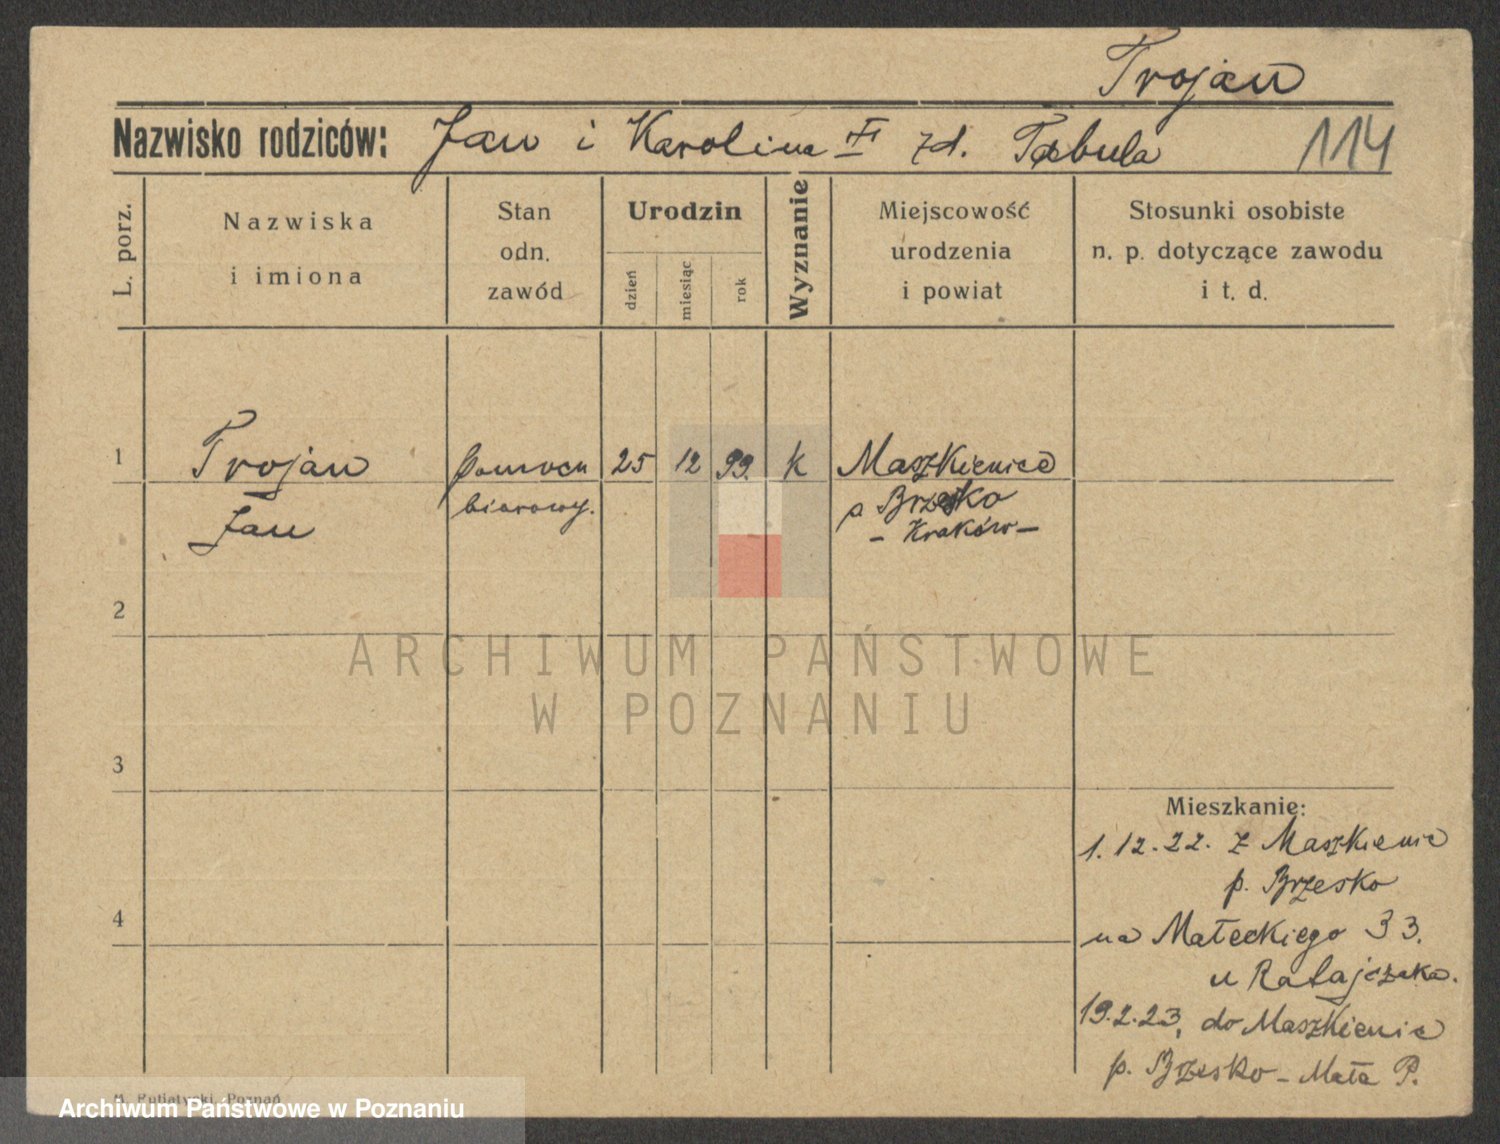 Trojan
Nazwisko rodziców: Jan i Karolina zd. Tabula 114
L. porz.
Nazwiska
i imiona
Stan
odn.
zawód
Urodzin
dzień
miesiąc
rok
Wyznanie
Miejscowość
urodzenia
i powiat
Stosunki osobiste
n. p. dotyczące zawodu
i t. d.
1 Trojan pomocn 25 12 99. k Maszkienice
Jan biurowy. p Brzesko
- Kraków -
2
ARCHIWUM PAŃSTWOWE
W POZNANIU
3
Mieszkanie:
1. 12. 22. z Maszkienic
p. Brzesko
4
na Małeckiego 33.
u Ratajczaka.
19.2.23, do Maszkienic
p. Brzesko - Mała P.
Archiwum Państwowe w Poznaniu